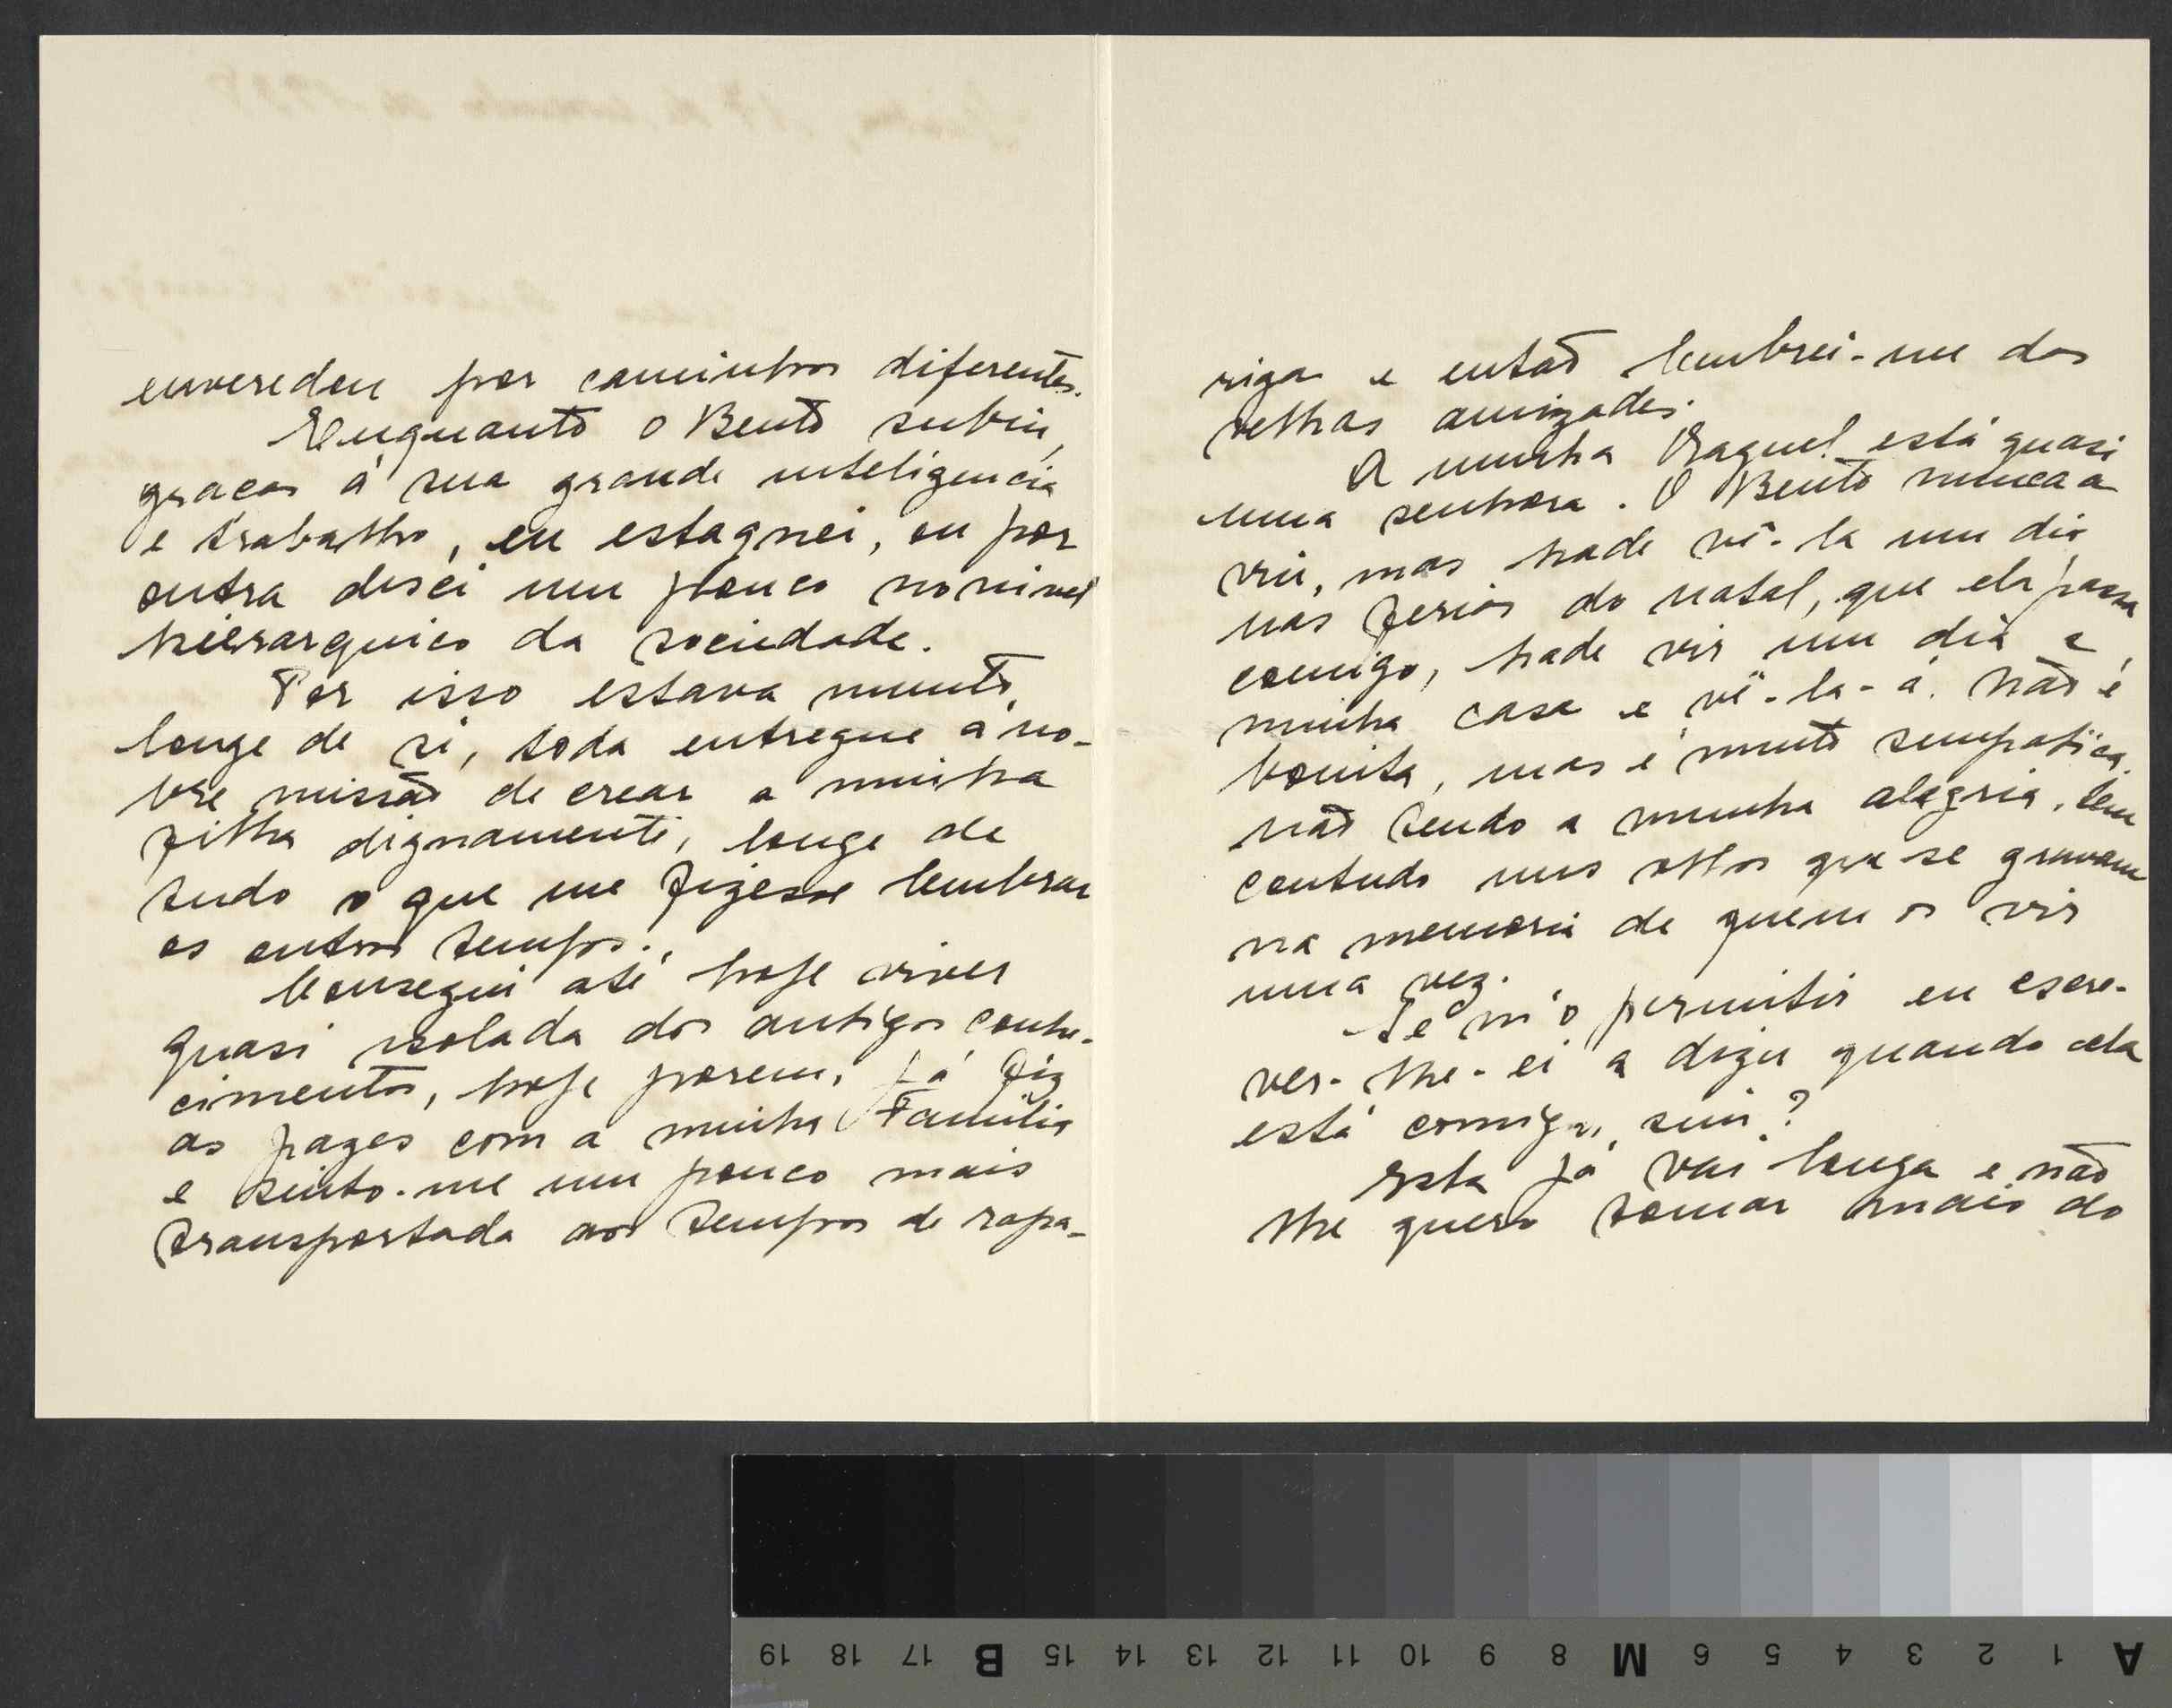 enveredou por caminhos diferentes.
Enquanto o Bento subiu,
graças á sua grande inteligencia
e trabalho, eu estagnei, ou por
outra desci um pouco no nivel
hierarquico da sociedade.
Por isso estava muito
longe de si, toda entregue á no-
bre missão de crear a minha
filha dignamente, longe de
tudo o que me fizesse lembrar
os outros tempos.
Consegui até hoje viver
quasi isolada dos antigos conhe-
cimentos, hoje porem, já fiz
as pazes com a minha Familia
e sinto-me um pouco mais
transportada aos tempos de rapa-
riga e então lembrei-me das
velhas amizades.
A minha Raquel está quasi
uma senhora. O Bento nunca a
viu, mas hade vê-la um dia
nas ferias do natal, que ela passa
comigo, hade vir um dia a
minha casa e vê-la-á. Não é
bonita, mas é muito simpatica,
não tendo a minha alegria, tem
contudo uns olhos que se gravam
na memoria de quem os vir
uma vez.
Se m'o permitir eu escre-
ver-lhe-ei a dizer quando ela
está comigo, sim?
Esta já vai longa e não
lhe quero tomar mais do
19 18 17 B 15 14 13 12 11 10 9 8 M 6 5 4 3 2 1 A